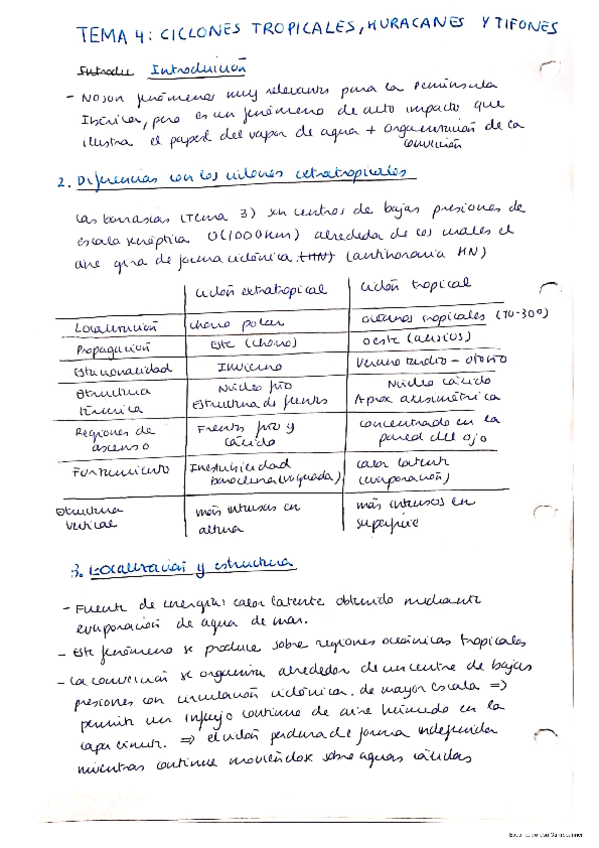 TEMA 4: CICLONES TROPICALES, HURACANES Y TIFONES
Introdu Introducción
- No son fenómenos muy relevantes para la Península
Ibérica, pero es un fenómeno de alto impacto que
ilustra el papel del vapor de agua + organización de la
convección
2. Diferencias con los ciclones extratropicales
Las borrascas (Tema 3) son centros de bajas presiones de
escala sinóptica O(1000 km) alrededor de los cuales el
aire gira de forma ciclónica (HN) (antihoraria HN)
ciclón extratropical ciclón tropical
Localización chorro polar océanos tropicales (10-30º)
Propagación Este (chorro) oeste (alisios)
Estacionalidad Invierno Verano tardío - otoño
Estructura térmica Núcleo frío Estructura de frentes Núcleo cálido Aprox axisimétrica
Regiones de ascenso Frentes frío y cálido concentrado en la pared del ojo
Forzamiento Inestabilidad baroclina (vaguada) calor latente (evaporación)
Estructura vertical más intensos en altura más intensos en superficie
3. Localización y estructura
- Fuente de energía: calor latente obtenido mediante
evaporación de agua de mar.
- Este fenómeno se produce sobre regiones oceánicas tropicales
- La convección se organiza alrededor de un centro de bajas
presiones con circulación ciclónica de mayor escala =>
permite un influjo continuo de aire húmedo en la
capa límite. => el ciclón perdura de forma indefinida
mientras continue moviéndose sobre aguas cálidas